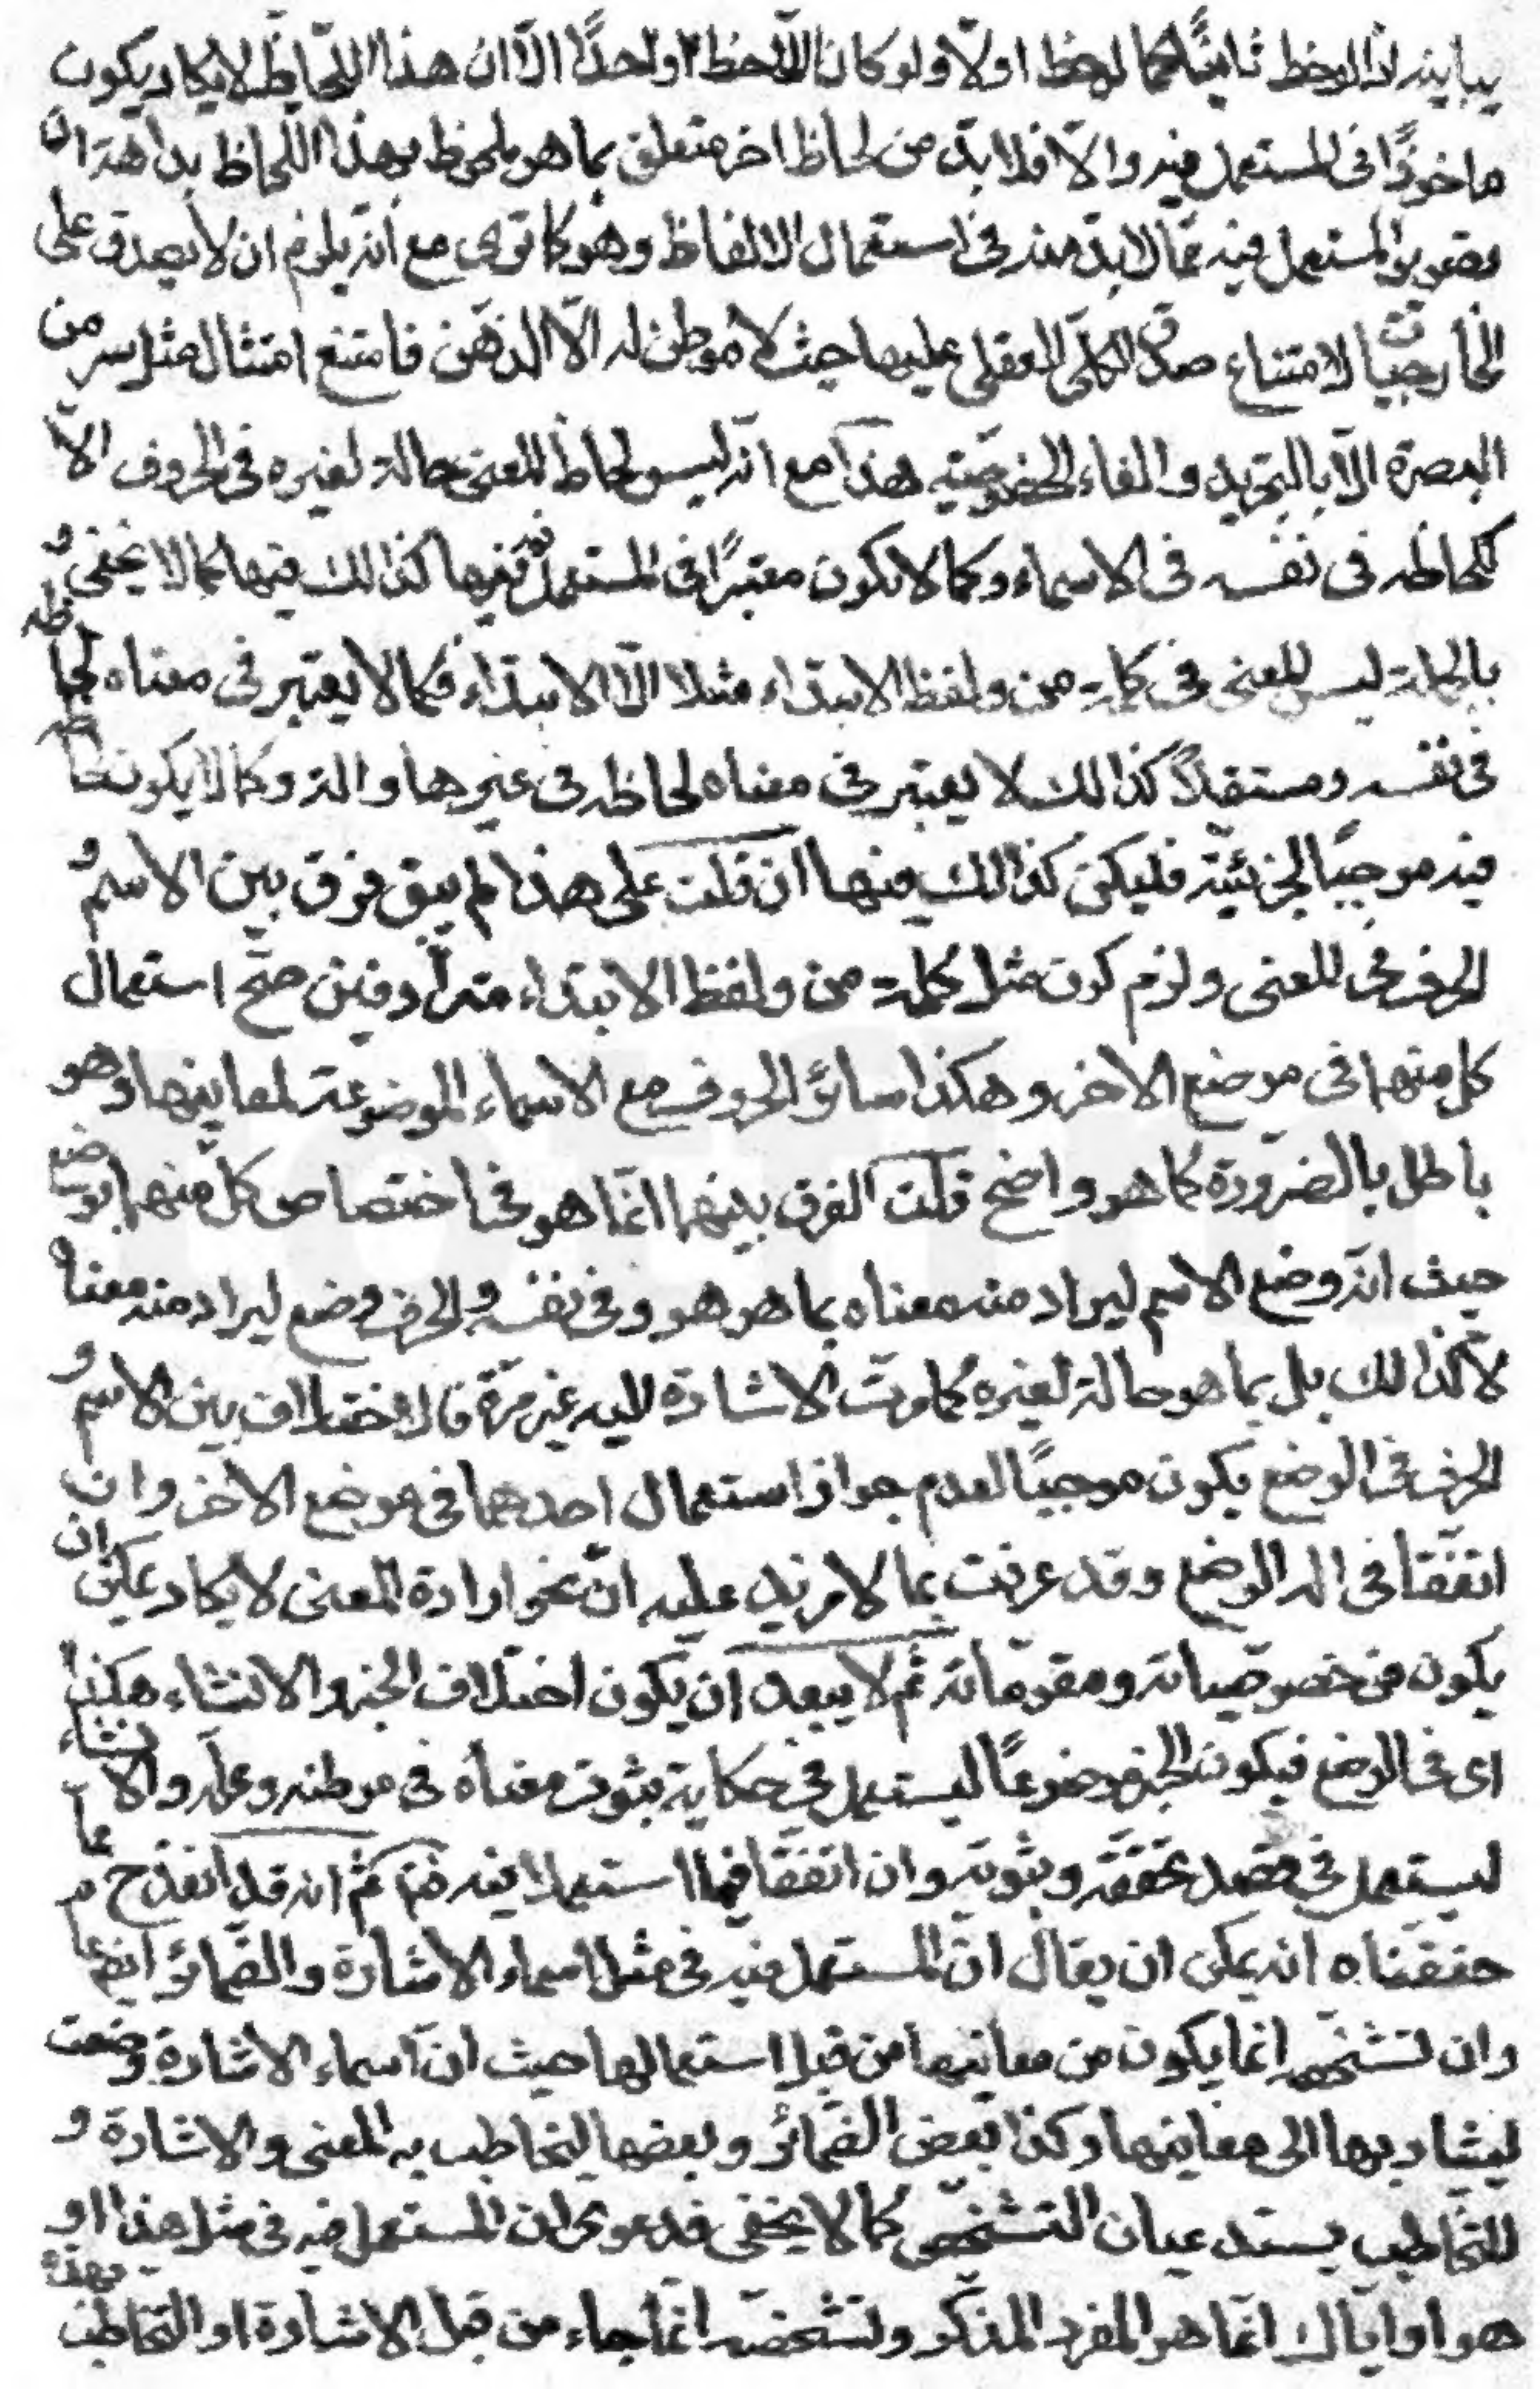 يباينه اذا لوحظ ثانيًا كما لوحظ اولًا ولو كان اللّاحظ واحدًا الّا ان هذا اللّحاظ لا يكاد يكون
ماخوذًا فى المستعمل فيه والّا فلا بدّ من لحاظ اخر متعلق بما هو ملحوظ بهذا اللّحاظ بداهة ان
تصور المستعمل فيه ممّا لا بدّ منه فى استعمال الالفاظ وهو كما ترى مع انّه يلزم ان لا يصدق على
الخارجيّات لامتناع صدق الكلّى العقلى عليها حيث لا موطن له الّا الذهن فامتنع امتثال مثل سر من
البصرة الّا بالتجريد والغاء الخصوصيّة هذا مع انّه ليس لحاظ المعنى حالة لغيره فى الحروف الّا
كلحاظه فى نفسه فى الاسماء وكما لا يكون معتبرًا فى المستعمل فيه فيها كذالك فيها كما لا يخفى و
بالجملة ليس المعنى فى كلمة من ولفظ الابتداء مثلا الّا الابتداء فكما لا يعتبر فى معناه لحاظه
فى نفسه ومستقلًا كذالك لا يعتبر فى معناه لحاظه فى غيرها والة وكما لا يكون لحاظه
فيه موجبًا لجزئيّته فليكن كذالك فيها ان قلت على هذا لم يبق فرق بين الاسم و
الحرف فى المعنى ولزم كون مثل كلمة من ولفظ الابتداء مترادفين صحّ استعمال
كل منهما فى موضع الاخر وهكذا سائر الحروف مع الاسماء الموضوعة لمعانيها وهو
باطل بالضرورة كما هو واضح قلت الفرق بينهما انّما هو فى اختصاص كل منهما بوضع
حيث انّه وضع الاسم ليراد منه معناه بما هو هو وفى نفسه والحرف وضع ليراد منه معناه
لا كذالك بل بما هو حالة لغيره كما مرّت الاشارة اليه غير مرّة فالاختلاف بين الاسم و
الحرف فى الوضع يكون موجبًا لعدم جواز استعمال احدهما فى موضع الاخر وان
اتفقا فى ما له الوضع وقد عرفت بما لا مزيد عليه انّ نحو ارادة المعنى لا يكاد يمكن ان
يكون من خصوصياته ومقوماته ثم لا يبعد ان يكون اختلاف الخبر والانشاء هكذا
اى فى الوضع فيكون الخبر موضوعًا ليستعمل فى حكاية ثبوت معناه فى موطنه ومحله والانشاء
ليستعمل فى قصد تحققه وثبوته وان اتفقا فيما استعملا فيه ثم انه قد انقدح مما
حققناه انه يمكن ان يقال انّ المستعمل فيه فى مثل اسماء الاشارة والضمائر ايضا عام
وان تشخصه انما يكون من معانيها من قبل استعمالها حيث ان اسماء الاشارة وضعت
ليشار بها الى معانيها وكذا بعض الضمائر وبعضها ليخاطب به المعنى والاشارة و
التخاطب يستدعيان التشخص كما لا يخفى فدعوى ان المستعمل فيه فى مثل هذا او
هو او اياك انما هو المفرد المذكر وتشخصه انما جاء من قبل الاشارة او التخاطب بهذه